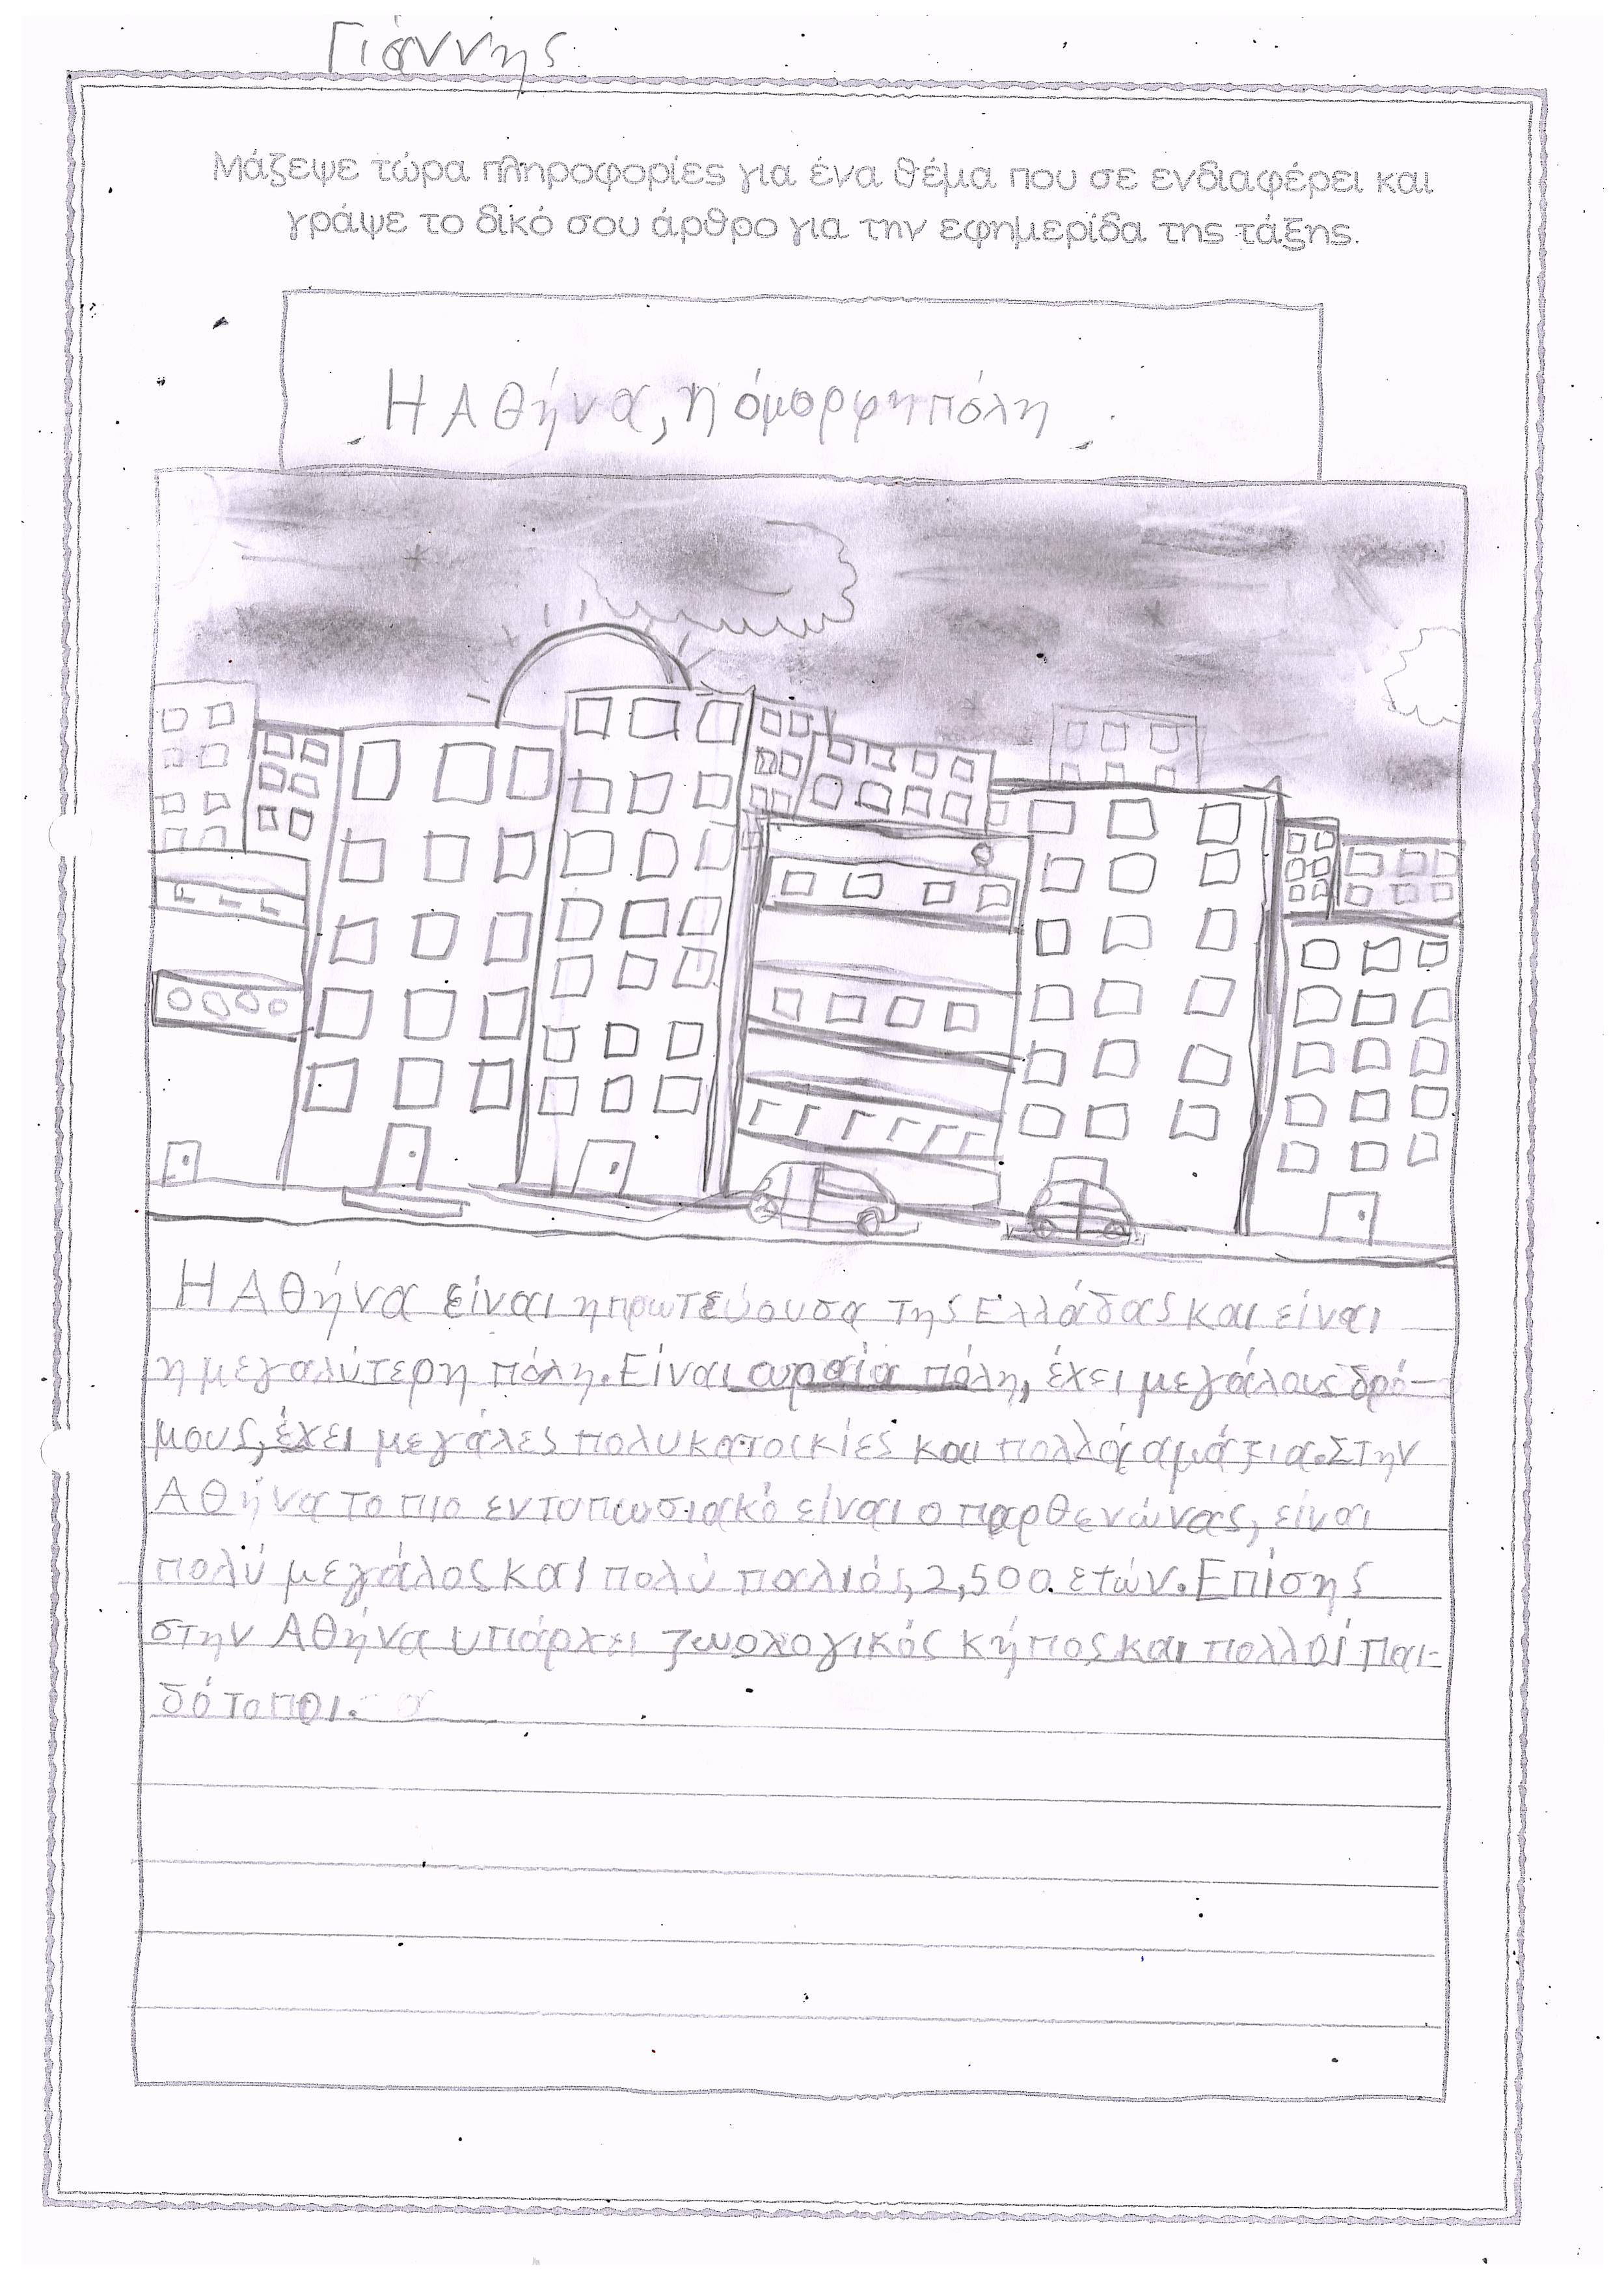 Γιάννης
Μάζεψε τώρα πληροφορίες για ένα θέμα που σε ενδιαφέρει και
γράψε το δικό σου άρθρο για την εφημερίδα της τάξης.
Η Αθήνα, η όμορφη πόλη
Η Αθήνα είναι η πρωτεύουσα της Ελλάδας και είναι
η μεγαλύτερη πόλη. Είναι ωραία πόλη, έχει μεγάλους δρό-
μους, έχει μεγάλες πολυκατοικίες και πολλά αμάξια. Στην
Αθήνα το πιο εντυπωσιακό είναι ο παρθενώνας, είναι
πολύ μεγάλος και πολύ παλιός, 2,500 ετών. Επίσης
στην Αθήνα υπάρχει ζωολογικός κήπος και πολλοί παι-
δότοποι.